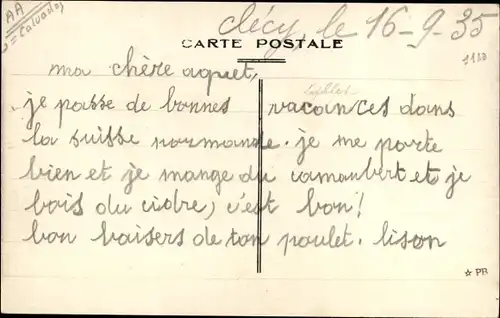 AA
= Calvados
clécy, le 16-9-35
CARTE POSTALE
ma chère aquet,
je passe de bonnes vacances dans
la suisse normande. je me porte
bien et je mange du camanbert et je
bois du cidre, c'est bon!
bon baisers de ton poulet. lison
☆ PB